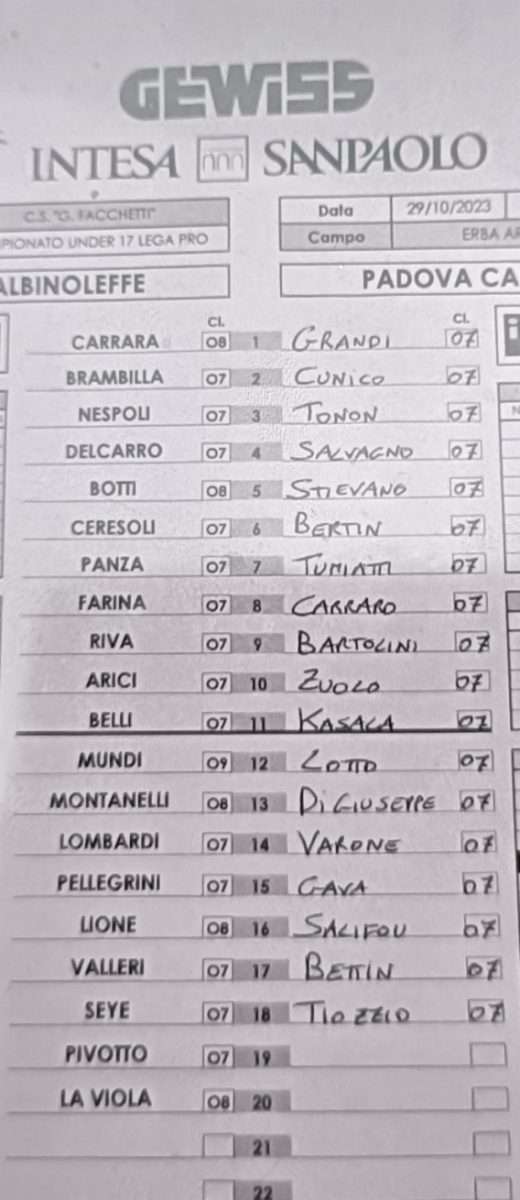 GEWISS
INTESA SANPAOLO
C.S. "G. FACCHETTI" Data 29/10/2023
PIONATO UNDER 17 LEGA PRO Campo ERBA AR
ALBINOLEFFE PADOVA CA
CL. CL.
CARRARA 08 1 GRANDI 07
BRAMBILLA 07 2 CUNICO 07
NESPOLI 07 3 TONON 07
DELCARRO 07 4 SALVAGNO 07
BOTTI 08 5 STIEVANO 07
CERESOLI 07 6 BERTIN 07
PANZA 07 7 TUMIATTI 07
FARINA 07 8 CARRARO 07
RIVA 07 9 BARTOLINI 07
ARICI 07 10 ZUOLO 07
BELLI 07 11 KASALA 07
MUNDI 09 12 LOTTO 07
MONTANELLI 08 13 DI GIUSEPPE 07
LOMBARDI 07 14 VARONE 07
PELLEGRINI 07 15 GAVA 07
LIONE 08 16 SALIFOU 07
VALLERI 07 17 BETTIN 07
SEYE 07 18 TIOZZO 07
PIVOTTO 07 19
LA VIOLA 08 20
21
22